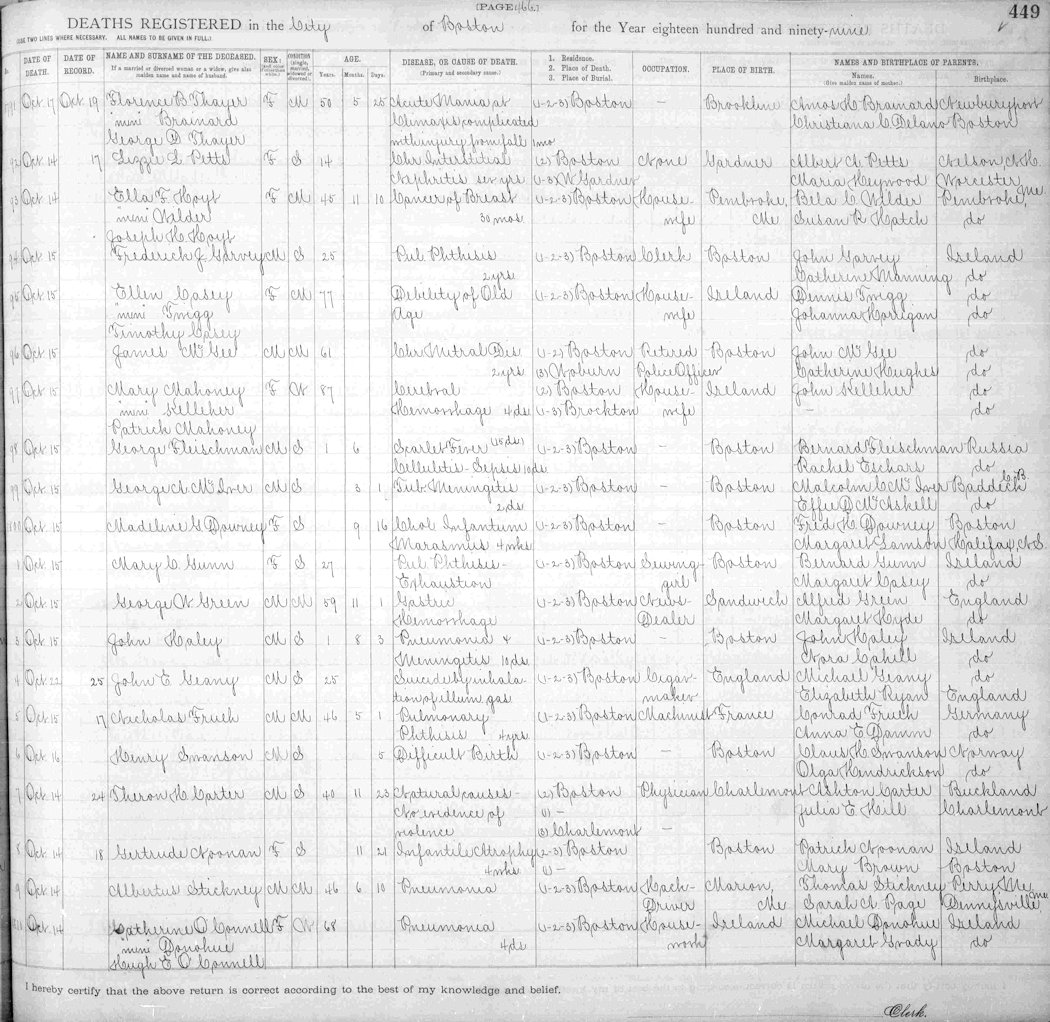 [PAGE 466.]
449
DEATHS REGISTERED in the City of Boston for the Year eighteen hundred and ninety-nine
(USE TWO LINES WHERE NECESSARY. ALL NAMES TO BE GIVEN IN FULL.)
No. DATE OF DEATH. DATE OF RECORD. NAME AND SURNAME OF THE DECEASED. SEX: CONDITION AGE. DISEASE, OR CAUSE OF DEATH. 1. Residence. OCCUPATION. PLACE OF BIRTH. NAMES AND BIRTHPLACE OF PARENTS.
If a married or divorced woman or a widow, give also maiden name and name of husband. Years. Months. Days. (Primary and secondary cause.) 2. Place of Death. Names. Birthplace.
3. Place of Burial. (Give maiden name of mother.)
Oct 17 Oct 19 Florence B Thayer F M 50 5 25 Acute Mania at (1-2-3) Boston – Brookline Amos H Brainard Newburyport
mini Brainard Climaxis complicated Christiana C Delano Boston
George D Thayer with injury from fall 1 mo
92 Oct 14 17 Lizzie L Petts F S 14 Chr Interstitial (2) Boston None Gardner Albert A Petts Nelson, N.H.
Nephritis sev yrs (1-3) W Gardner Maria Heywood Worcester
93 Oct 14 Ella F Hoyt F M 45 11 10 Cancer of Breast (1-2-3) Boston House- Pembroke, Bela C Wilder Pembroke, Me
mini Wilder 30 mos. wife Me Susan R Hatch do
Joseph H Hoyt
94 Oct 15 Frederick J Garvey M S 25 Pul Phthisis (1-2-3) Boston Clerk Boston John Garvey Ireland
2 yrs Catherine Manning do
95 Oct 15 Ellen Casey F M 77 Debility of Old (1-2-3) Boston House- Ireland Dennis Twigg do
mini Twigg Age wife Johanna Horrigan do
Timothy Casey
96 Oct 15 James McGee M M 61 Chr Mitral Dis (1-2) Boston Retired Boston John McGee do
2 yrs (3) Woburn Police Officer Catherine Hughes do
97 Oct 15 Mary Mahoney F W 87 Cerebral (2) Boston House- Ireland John Kelleher do
mini Kelleher Hemorrhage 4 ds (1-3) Brockton wife – do
Patrick Mahoney
98 Oct 15 George Fleischman M S 1 6 Scarlet Fever (15 ds) (1-2-3) Boston – Boston Bernard Fleischman Russia
Cellulitis-Sepsis 10 ds Rachel Eschars do
99 Oct 15 George A McIver M S 3 1 Tub Meningitis (1-2-3) Boston – Boston Malcolm C McIver Baddeck C.B
2 ds Effie D McAskell do
Oct 15 Madeline G Downey F S 9 16 Chol Infantum (1-2-3) Boston – Boston Fred H Downey Boston
Marasmus 4 wks Margaret Samson Halifax, N.S.
1 Oct 15 Mary C Gunn F S 27 Pul Phthisis- (1-2-3) Boston Sewing- Boston Bernard Gunn Ireland
Exhaustion girl Margaret Casey do
2 Oct 15 George W Green M M 59 11 1 Gastric (1-2-3) Boston News- Sandwich Alfred Green England
Hemorrhage Dealer Margaret Hyde do
3 Oct 15 John Haley M S 1 8 3 Pneumonia & (1-2-3) Boston – Boston John Haley Ireland
Meningitis 10 ds Nora Cahill do
4 Oct 22 25 John E Geany M S 25 Suicide by inhala- (1-2-3) Boston Cigar- England Michael Geany do
tion of illum gas maker Elizabeth Ryan England
5 Oct 15 17 Nicholas Frueh M M 46 5 1 Pulmonary (1-2-3) Boston Machinist France Conrad Frueh Germany
Phthisis 4 yrs Anna E Damm do
6 Oct 16 Henry Swanson M S 5 Difficult Birth (1-2-3) Boston – Boston Claus H Swanson Norway
Olga Hendrickson do
7 Oct 14 24 Theron H Carter M S 40 11 23 Natural causes- (2) Boston Physician Charlemont Ashton Carter Buckland
No evidence of (1) – Julia E Hill Charlemont
violence (3) Charlemont –
8 Oct 14 18 Gertrude Noonan F S 11 21 Infantile Atrophy (2-3) Boston Boston Patrick Noonan Ireland
4 wks (1) – Mary Brown Boston
9 Oct 14 Albertus Stickney M M 46 6 10 Pneumonia (1-2-3) Boston Hack- Marion, Thomas Stickney Perry, Me
Driver Me Sarah A Page Dennysville Me
Oct 14 Catherine O'Connell F W 68 Pneumonia (1-2-3) Boston House- Ireland Michael Donohue Ireland
mini Donohue 4 ds work Margaret Grady do
Hugh E O'Connell
I hereby certify that the above return is correct according to the best of my knowledge and belief.
Clerk.